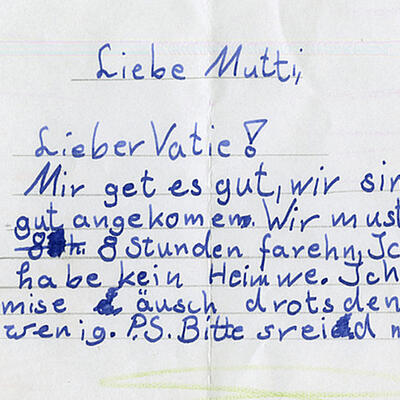 Liebe Mutti,
Lieber Vatie!
Mir get es gut, wir sin
gut angekomen. Wir must
8 Stunden farehn, Ic
habe kein Heimwe. Ich
mise äusch drotsden
wenig. P.S. Bitte sreied m